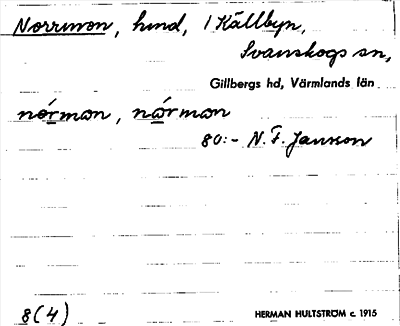 Norrmon, hmd, i Källbyn,
Svanskogs sn,
Gillbergs hd, Värmlands län
nórmon, nármon
80:- N. F. Janson
8(4)
HERMAN HULTSTRÖM c. 1915